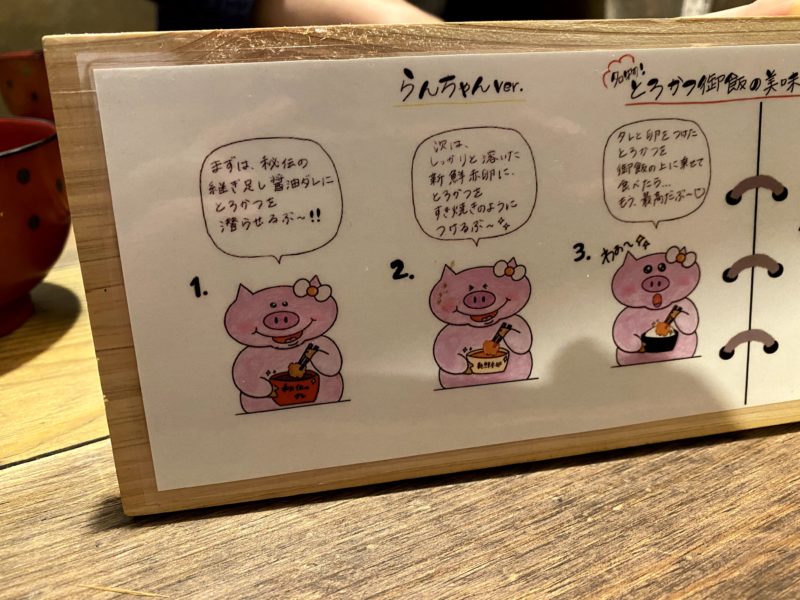 らんちゃんver.
とろかつ御飯の美味
まずは、秘伝の
継ぎ足し醤油ダレに
とろかつを
潜らせるぶ〜!!
次は、
しっかりと溶いた
新鮮赤卵に、
とろかつを
すき焼きのように
つけるぶ〜
タレと卵をつけた
とろかつを
御飯の上に乗せて
食べたら…
もう、最高だぶ〜♡
1.
2.
3.
わぁ〜
秘伝の
タレ